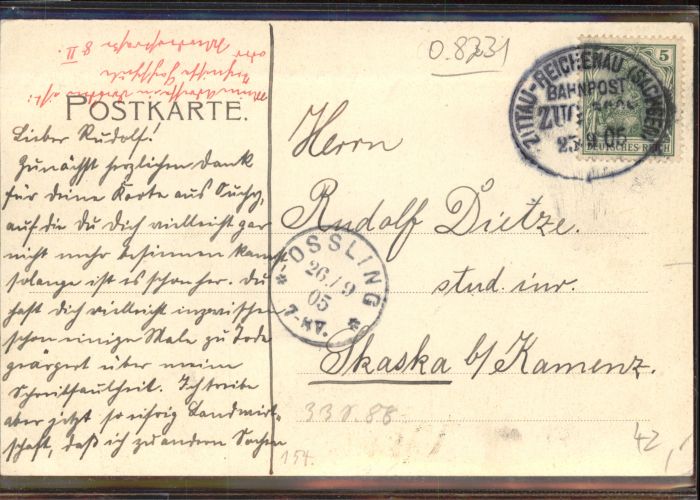 O.8731
5
DEUTSCHES REICH
ZITTAU-REICHENAU (SACHSEN)
BAHNPOST
ZUG
25.9.05
Technische Hochschule
oder
8 II.
POSTKARTE.
Lieber Rudolf!
Zunächst herzlichen Dank
für deine Karte aus
auf die Du Dich vielleicht gar
nicht mehr besinnen kannst
solange ist es schon her. Du
hast Dich vielleicht inzwischen
schon einige Male zu Tode
geärgert über meine
Schreibfaulheit. Ich treibe
aber jetzt so eifrig Landwirt-
schaft, daß ich zu andern Sachen
Herrn
Rudolf Dietze.
stud. iur.
Skaska b/Kamenz.
OSSLING
26/9
05
7-8V.
338.88
154.
42,-